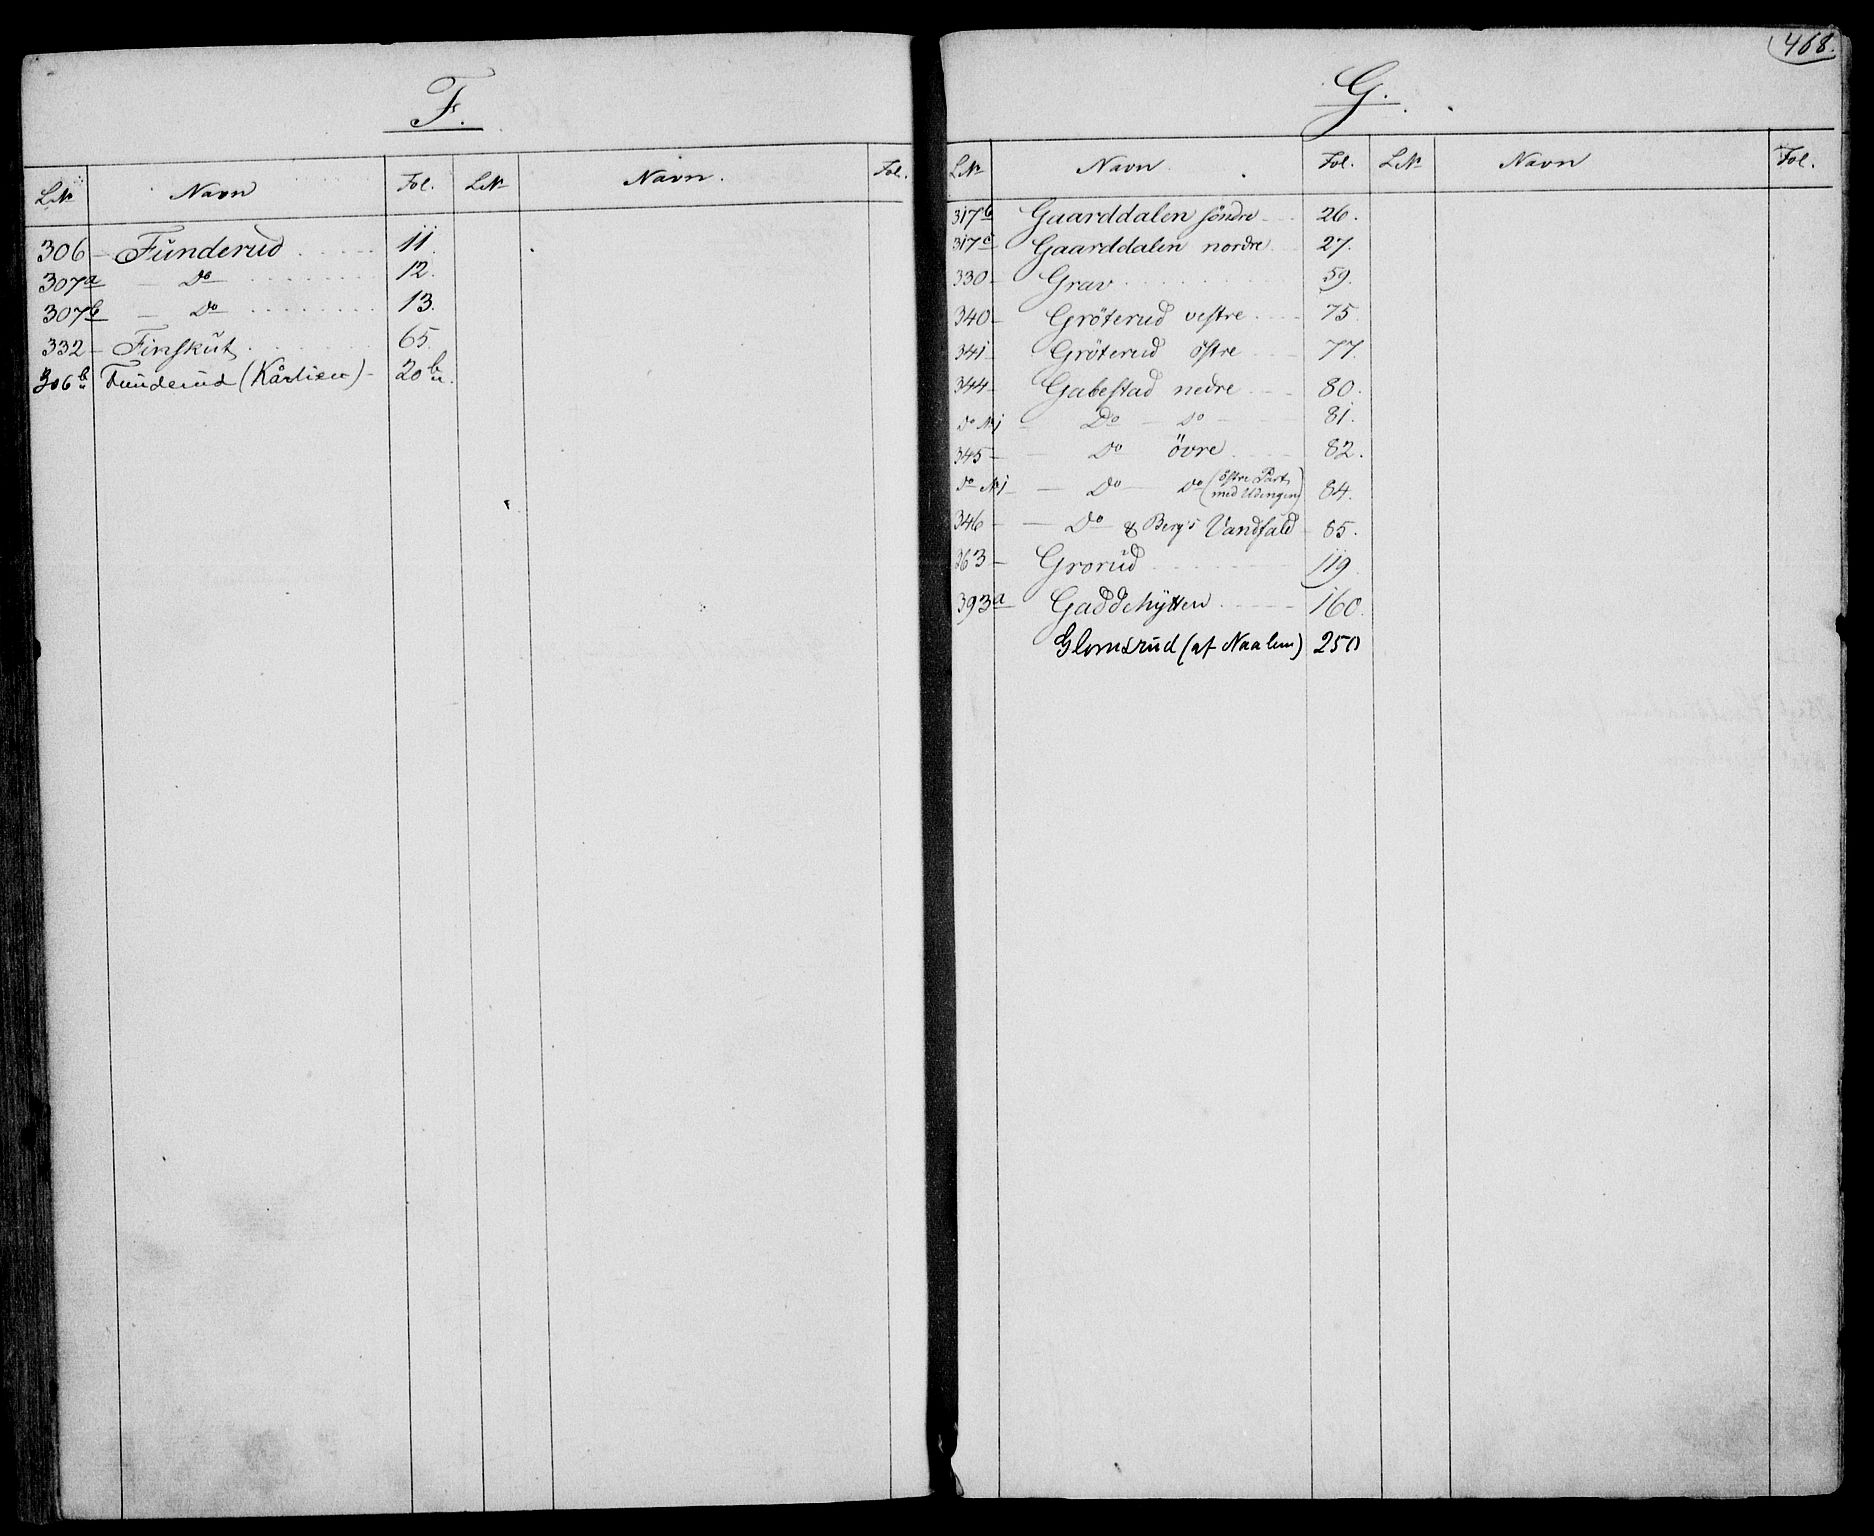 F.
LNo Navn Fol. LNo Navn. Fol.
306 Funderud 11.
307a Do 12.
307b Do 13.
332 Finskut 65.
306b Funderud (Kårlien) 20b
468.
G.
LNo Navn Fol. LNo Navn Fol.
317b Gaarddalen söndre 26.
317c Gaarddalen nordre 27.
330 Grav 59.
340 Gröterud vestre 75
341 Gröterud östre 77
344 Gabestad nedre 80.
do No 1 Do do 81.
345 Do övre 82.
do No 1 Do do (östre Part med Udengen) 84.
346 Do & Berg's Vandfald 85.
363 Grorud 119
393a Gaddehytten 160.
Glomsrud (af Naalem) 250